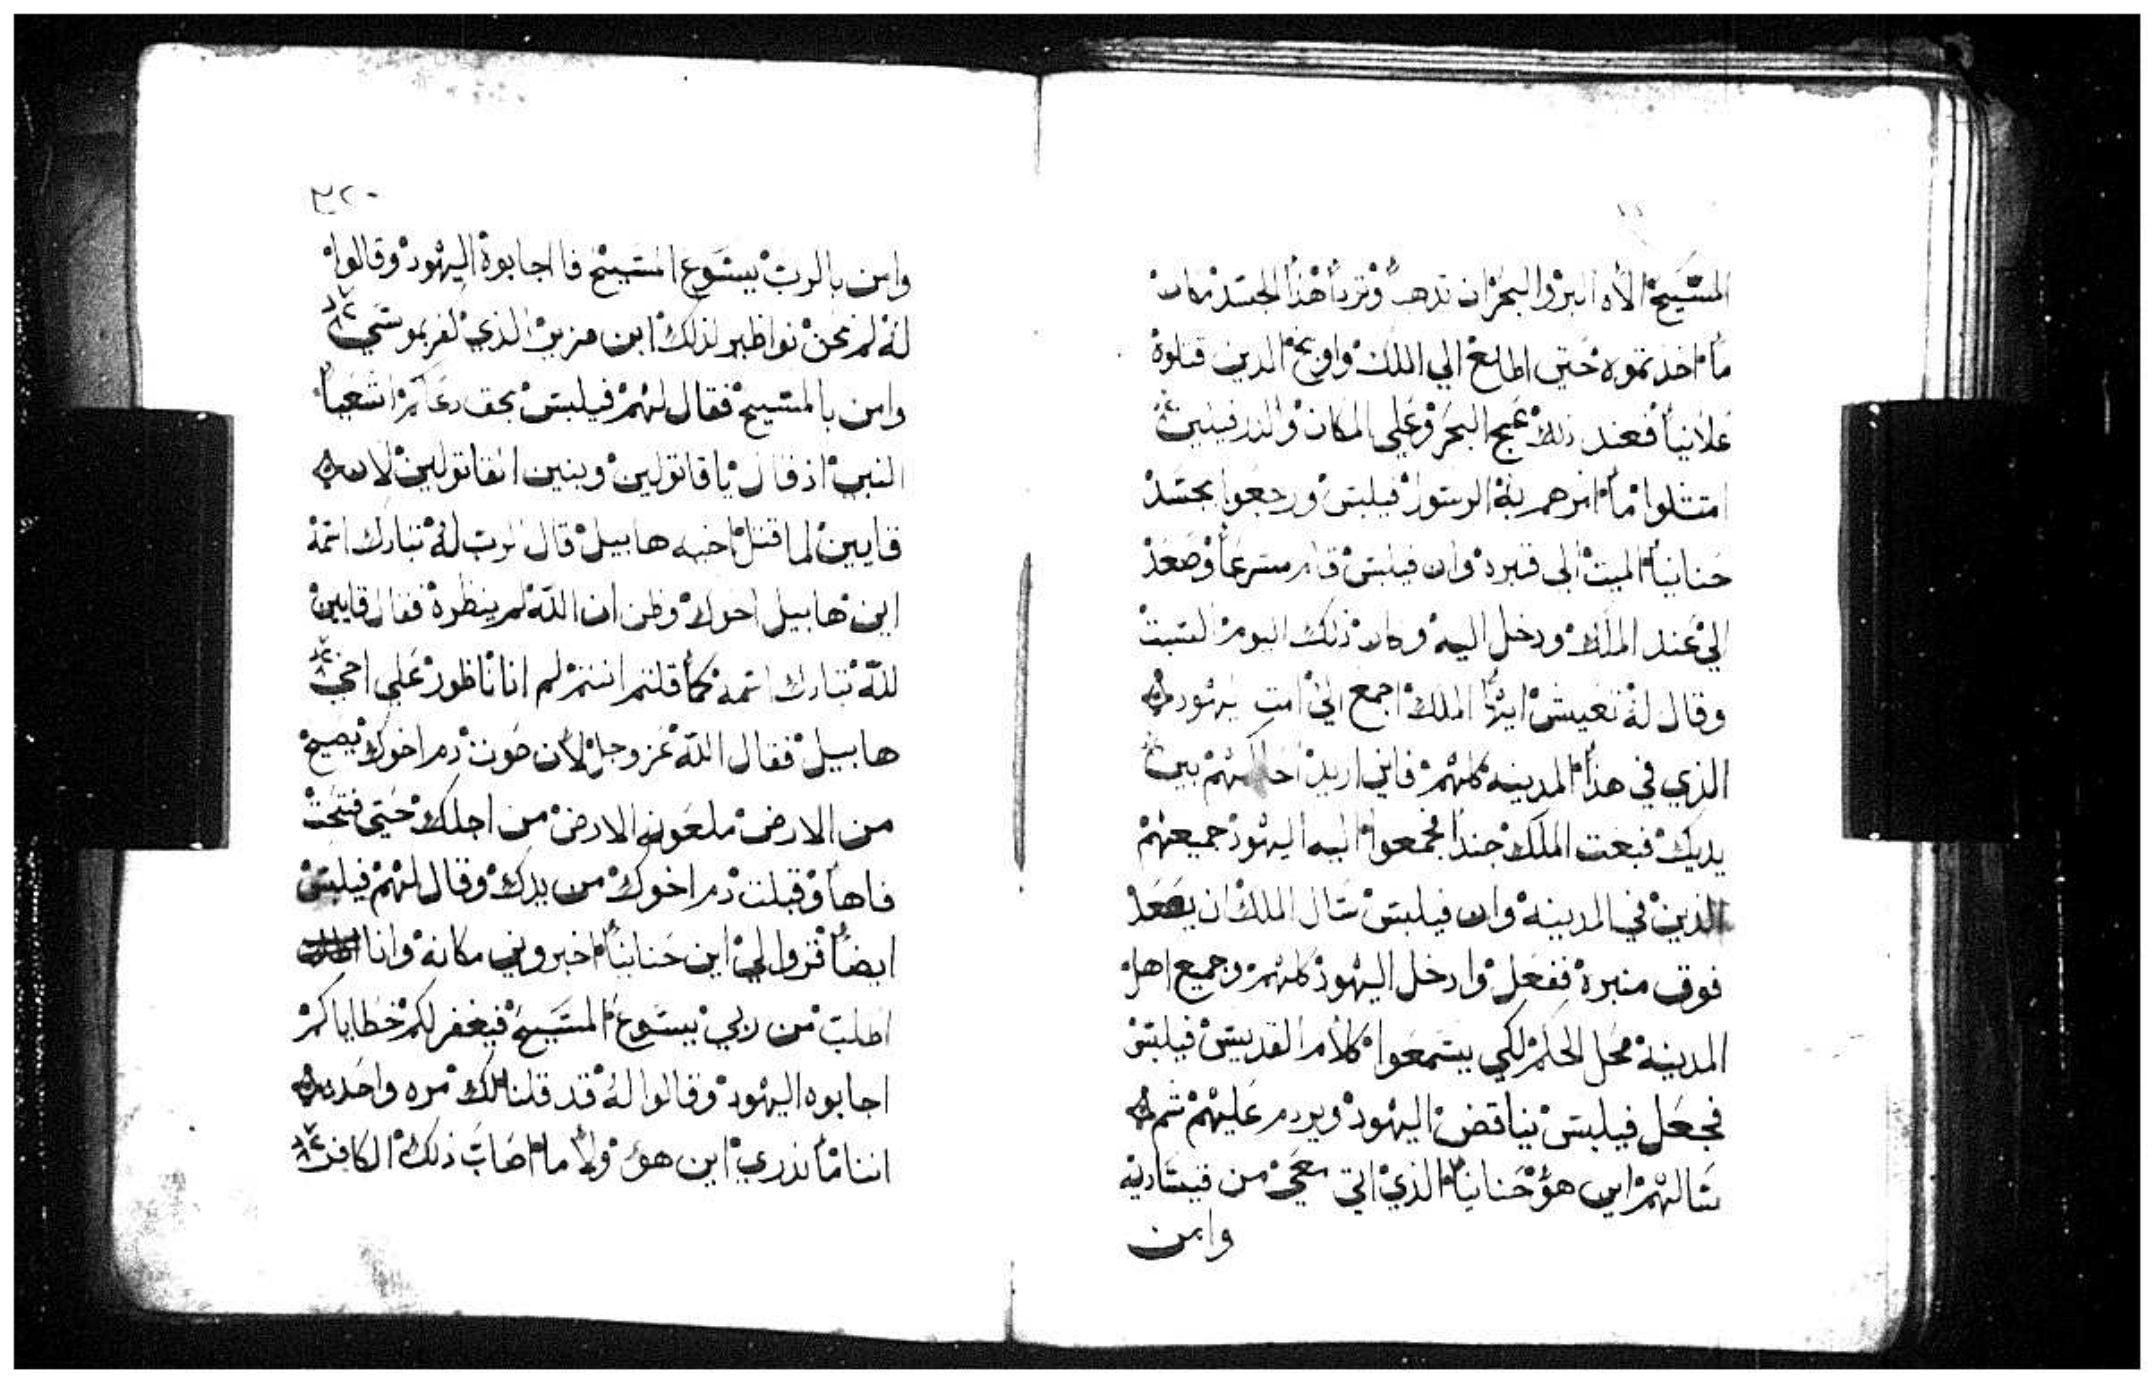 المسيح الاه البر والبحر ان تدهب وترد هذا الجسد مكان
ما اخذتموه حتي اطلع الي الملك واوبخ الدين قتلوة
علانياً فعند ذلك عج البحر وعلي المكان والدرفينين
امتثلوا ما امرهم به الرسول فيلبس ورجعوا بجسد
حنانيا الميت الي قبره وان فيلبس قام مسرعاً وصعد
الي عند الملك ودخل اليه وكان ذلك اليوم السبت
وقال له تعيش ايها الملك اجمع الي امت يهود
الذي في هذا المدينه كلهم فاني اريد احاكمهم بين
يديك فبعت الملك جنداً فجمعوا اليه اليهود جميعهم
الذين في المدينه وان فيلبس سال الملك ان يصعد
فوق منبره ففعل وادخل اليهود كلهم وجميع اهل
المدينه محل الحكم لكي يسمعوا كلام القديس فيلبس
فجعل فيلبس يناقض اليهود ويردم عليهم ثم
سالهم اين هو حنانيا الذي اتي معي من قيساريه
وامن
٣٢٠
وامن بالرب يسوع المسيح فا اجابوة اليهود وقالوا
له لم نحن نواظير لذلك ابن مزين الذي كفر بموسي
وامن بالمسيح فقال لهم فيلبس بحق دعاكم اشعيا
النبي اذ قال يا قاتولين وبنين القاتولين لان
قايين لما قتل اخيه هابيل قال الرب له تبارك اسمه
اين هابيل اخوك وظن ان الله لم ينظرة فقال قايين
لله تبارك اسمه كما قلتم انتم لم انا ناظور علي اخي
هابيل فقال الله عز وجل لان صوت دم اخوك يصيح
من الارض ملعونه الارض من اجلك حتي فتحت
فاها وقبلت دم اخوك من يدك وقال لهم فيلبس
ايضاً قروا لي اين حنانيا اخبروني مكانه وانا
اطلب من ربي يسوع المسيح فيغفر لكم خطاياكم
اجابوه اليهود وقالوا له قد قلنا لك مره واحده
اننا ما ندري اين هو ولا ما اصاب ذلك الكافر